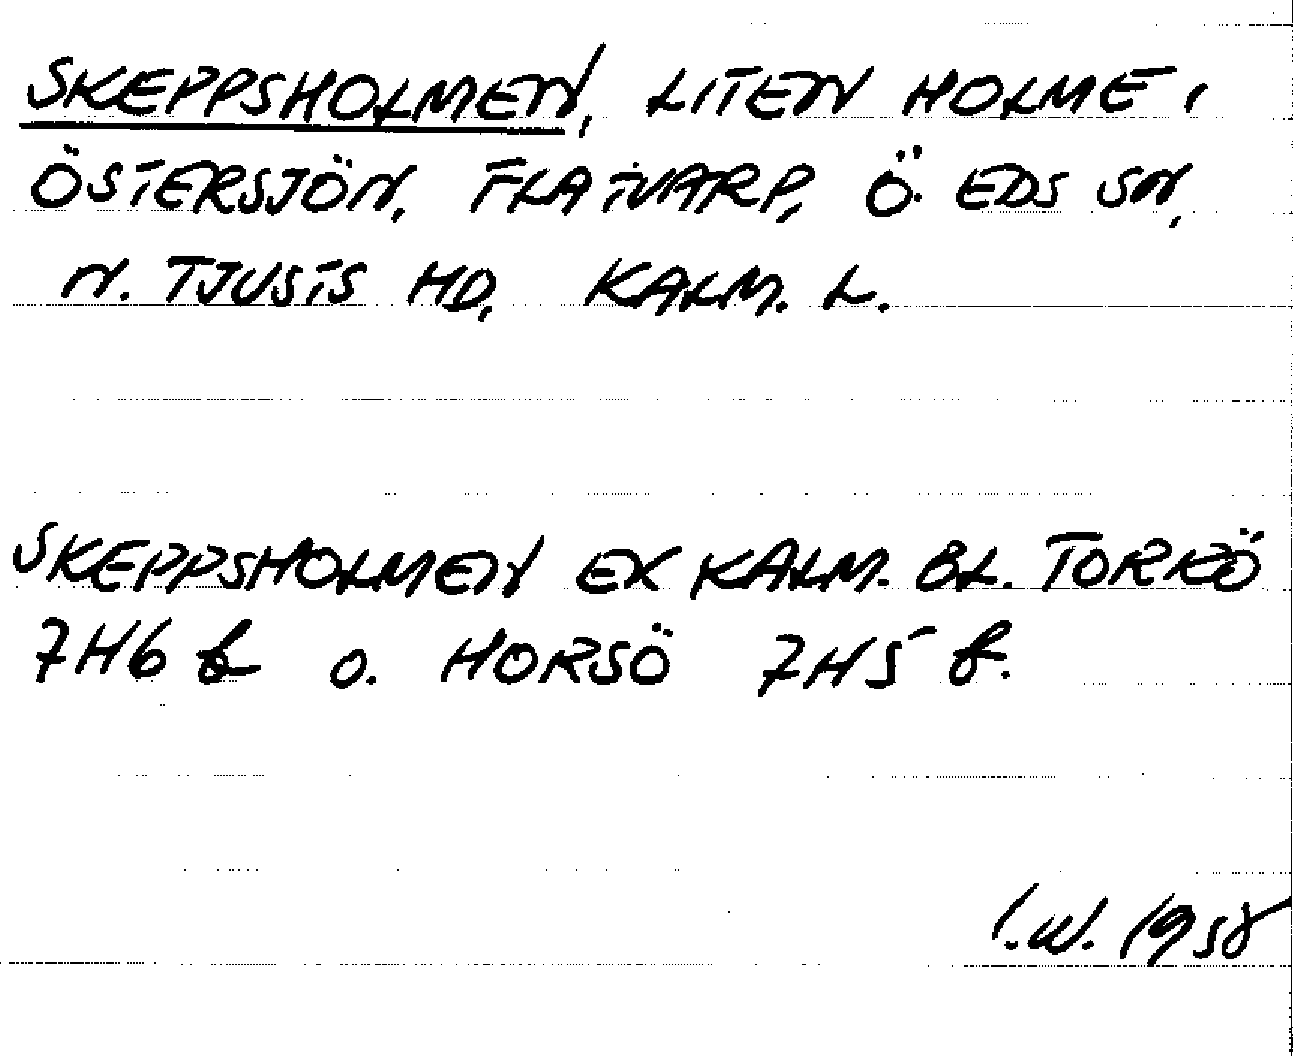 SKEPPSHOLMEN, LITEN HOLME I
ÖSTERSJÖN, FLATVARP, Ö. EDS SN,
N. TJUSTS HD, KALM. L.
SKEPPSHOLMEN EK KALM. BL. TORRÖ
7H6 b o. HORSÖ 7H5 b.
I.W. 1958